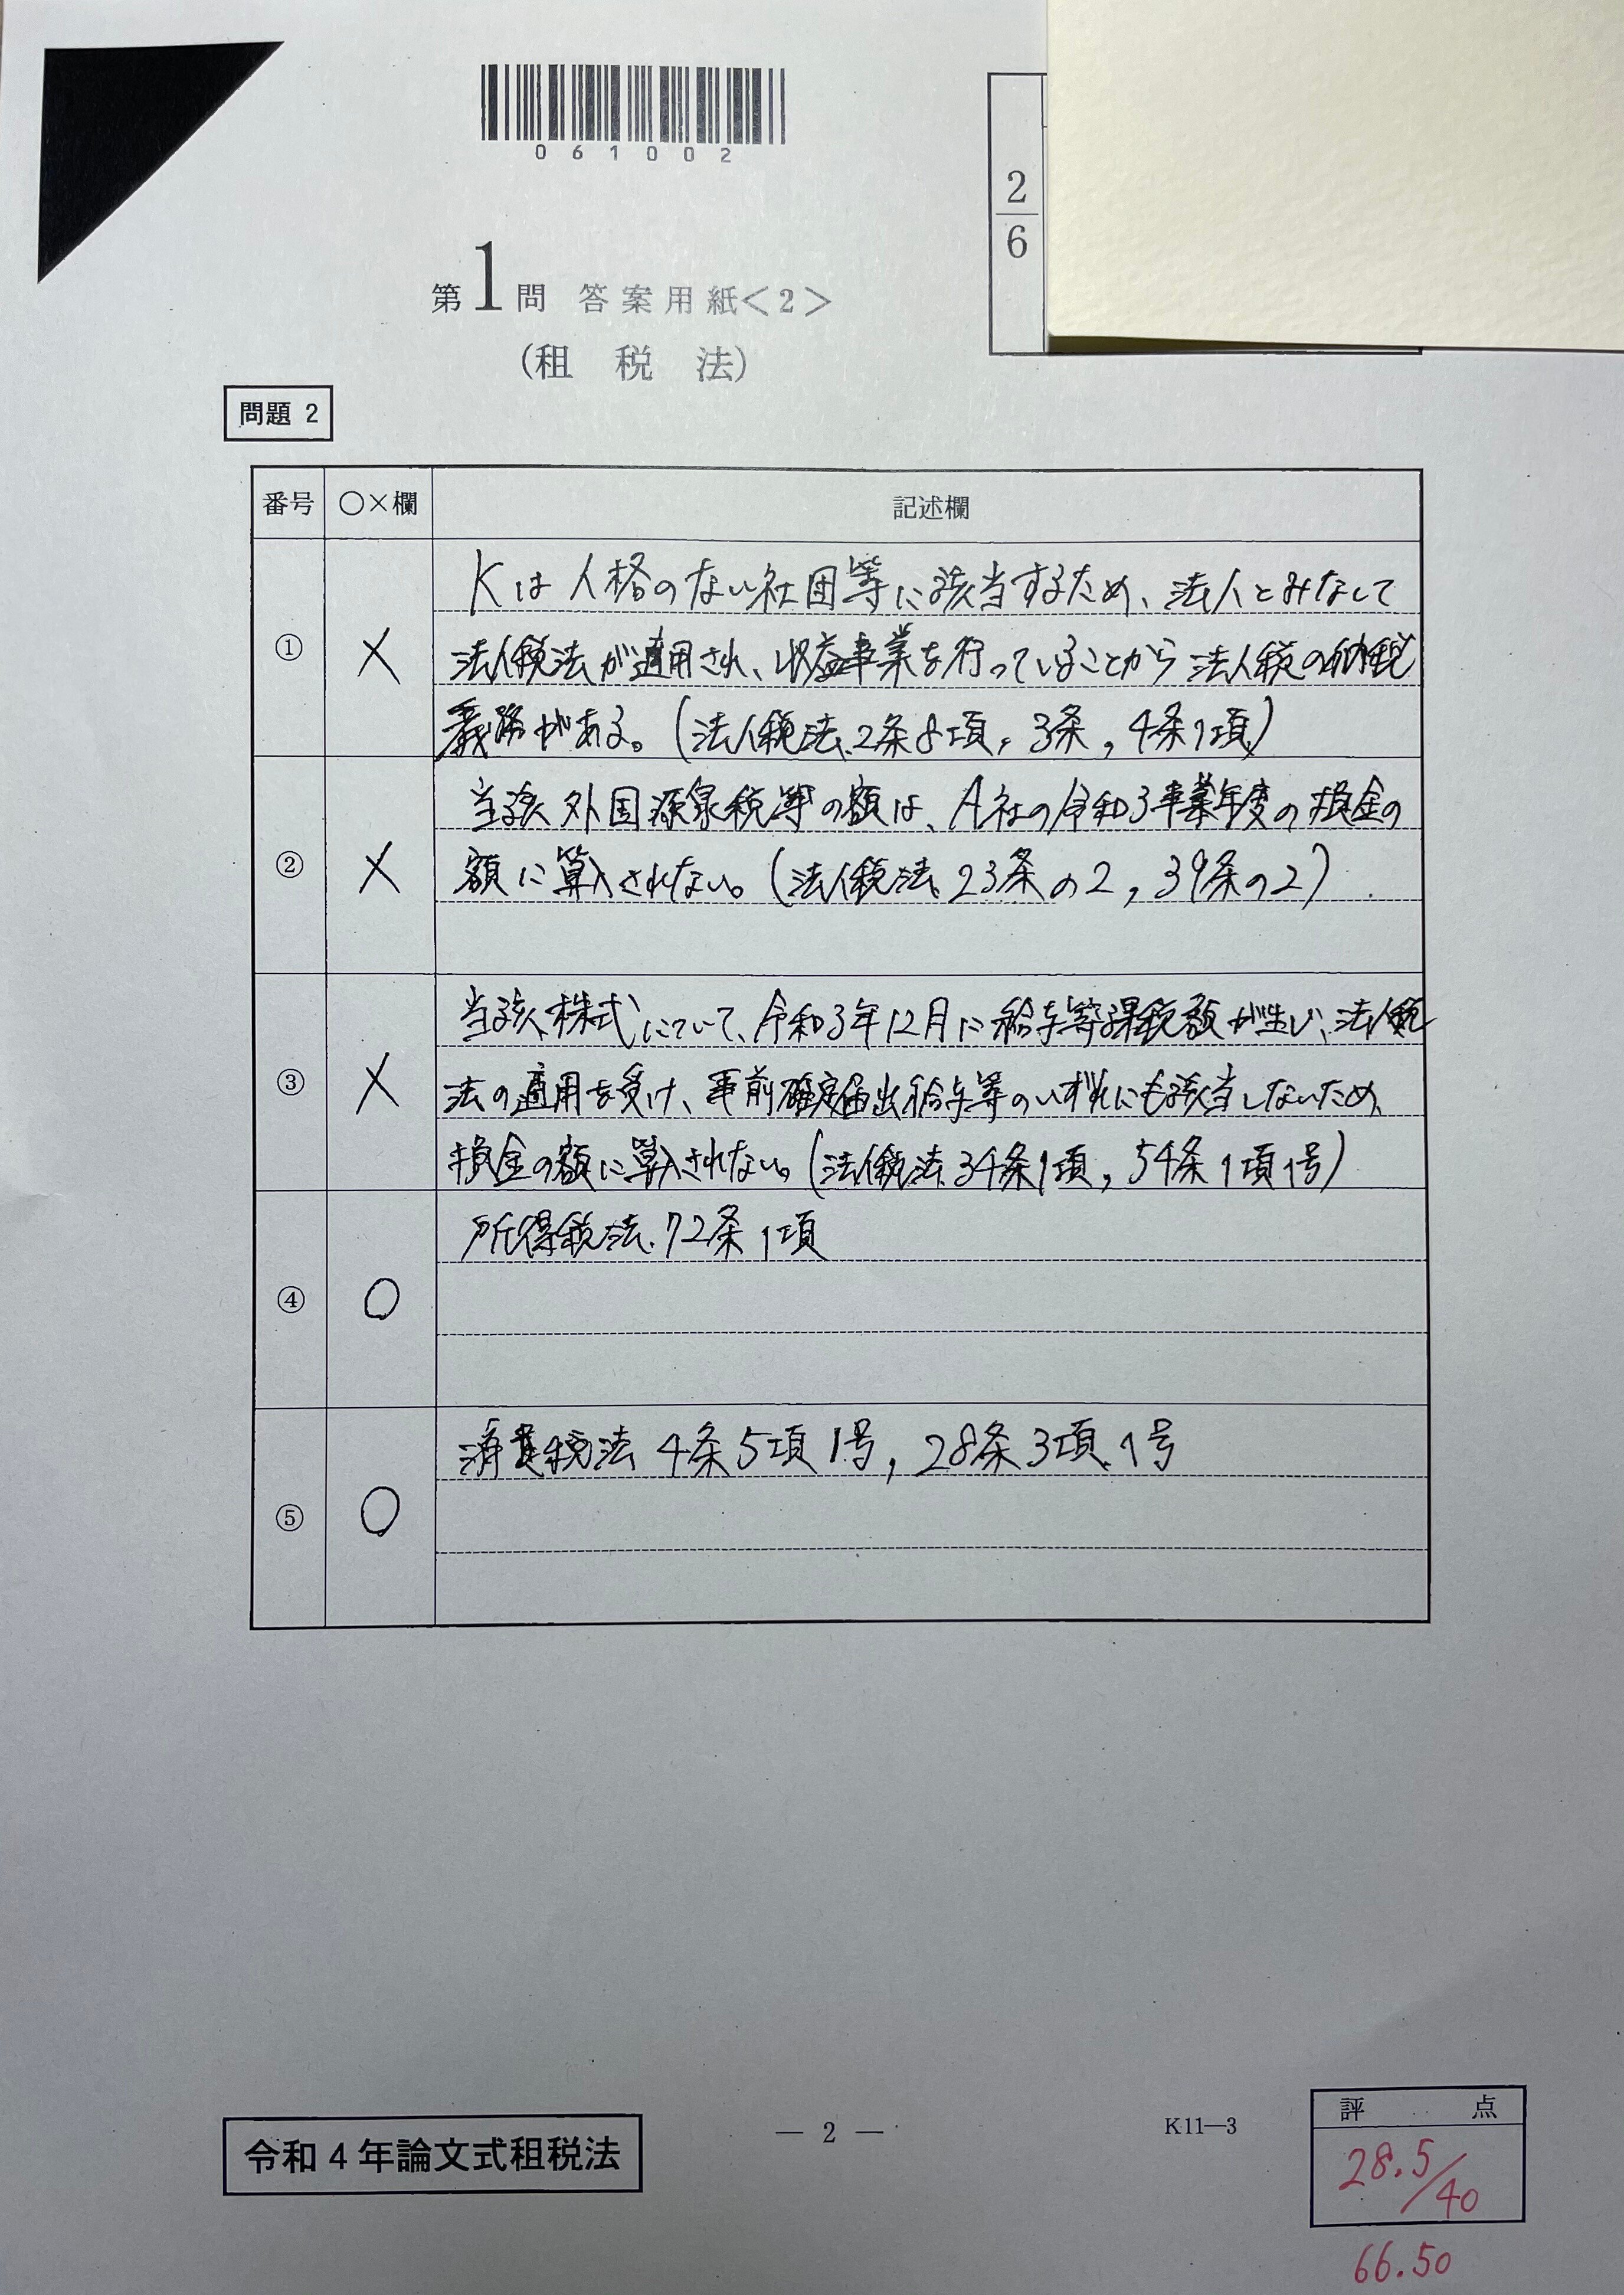 061002
2
6
第1問 答案用紙<2>
(租 税 法)
問題 2
番号 ○×欄 記述欄
① × Kは人格のない社団等に該当するため、法人とみなして
法人税法が適用され、収益事業を行っていることから法人税の納税
義務がある。(法人税法2条8項, 3条, 4条1項)
② × 当該外国源泉税等の額は、A社の令和3事業年度の損金の
額に算入されない。(法人税法23条の2, 39条の2)
③ × 当該株式について、令和3年12月に給与等課税額が生じ、法人税
法の適用を受け、事前確定届出給与等のいずれにも該当しないため
損金の額に算入されない。(法人税法34条1項, 54条1項1号)
④ ○ 所得税法72条1項
⑤ ○ 消費税法4条5項1号, 28条3項1号
令和4年論文式租税法
— 2 —
K11—3
評 点
28.5/40
66.50